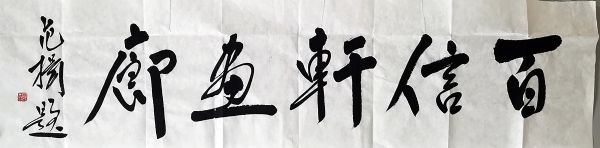 百信軒畫廊
范揚題